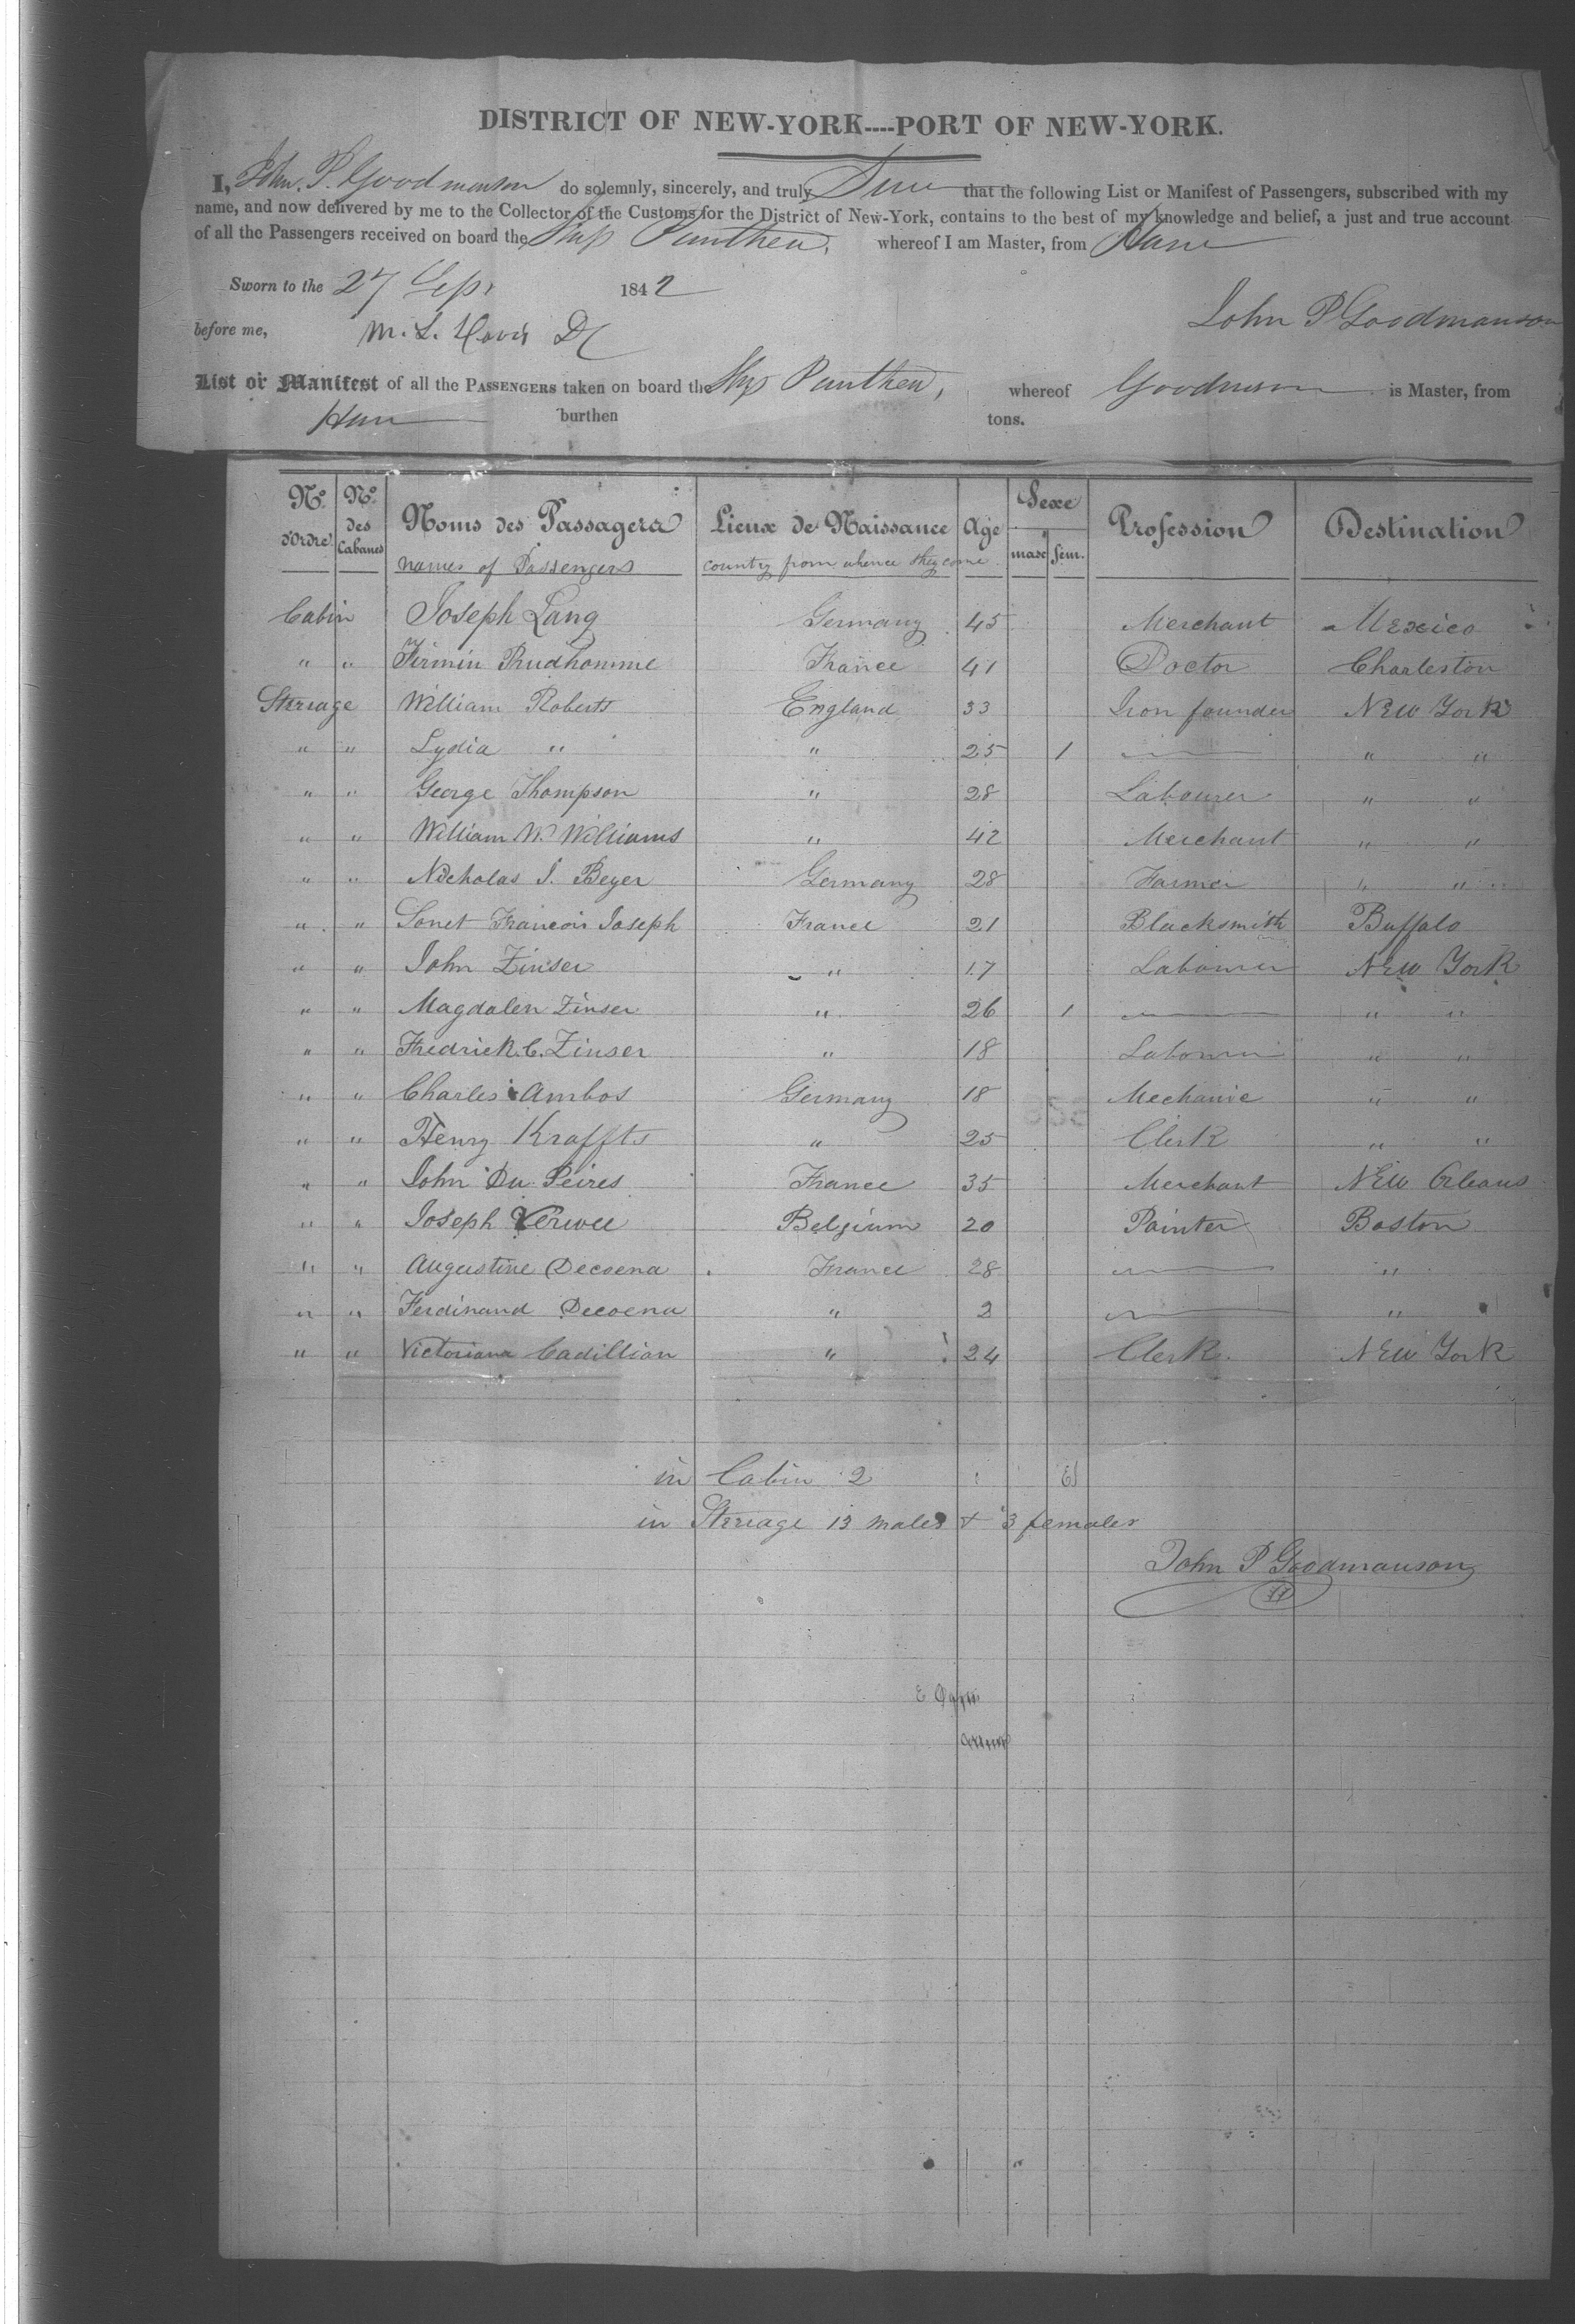 DISTRICT OF NEW-YORK----PORT OF NEW-YORK.
I, John. P. Goodmanson do solemnly, sincerely, and truly that the following List or Manifest of Passengers, subscribed with my
name, and now delivered by me to the Collector of the Customs for the District of New-York, contains to the best of my knowledge and belief, a just and true account
of all the Passengers received on board the Ship Panthea, whereof I am Master, from
Sworn to the 27 Sept 1842
John P Goodmanson
before me,
List or Manifest of all the PASSENGERS taken on board the Ship Panthea, whereof is Master, from
burthen tons.
No. d'Ordre No. des Cabanes Noms des Passagers Lieux de Naissance Age Sexe masc fém. Profession Destination
names of Passengers country from whence they come
Cabin Joseph Lang Germany 45 Merchant Mexico
" " Firmin Prudhomme France 41 Doctor Charleston
Sterage William Roberts England 33 Iron founder New York
" " Lydia " " 25 1 " "
" " George Thompson " 28 Labourer " "
" " William W. Williams " 42 Merchant " "
" " Nicholas J. Beyer Germany 28 Farmer " "
" " Sonet Francois Joseph France 21 Blacksmith Buffalo
" " John Zinser " 17 Labourer New York
" " Magdalen Zinser " 26 1 " "
" " Fredrick. C. Zinser " 18 Labourer " "
" " Charles Ambos Germany 18 Mechanic " "
" " Henry Kraffts " 25 Clerk " "
" " John Du Peires France 35 Merchant New Orleans
" " Joseph Verwee Belgium 20 Painter Boston
" " Augustine Decoena France 28 "
" " Ferdinand Decoena " 2 "
" " Victoriana Cadillian " 24 Clerk. New York
in Cabin 2
in Sterage 13 males + 3 females
John P Goodmanson